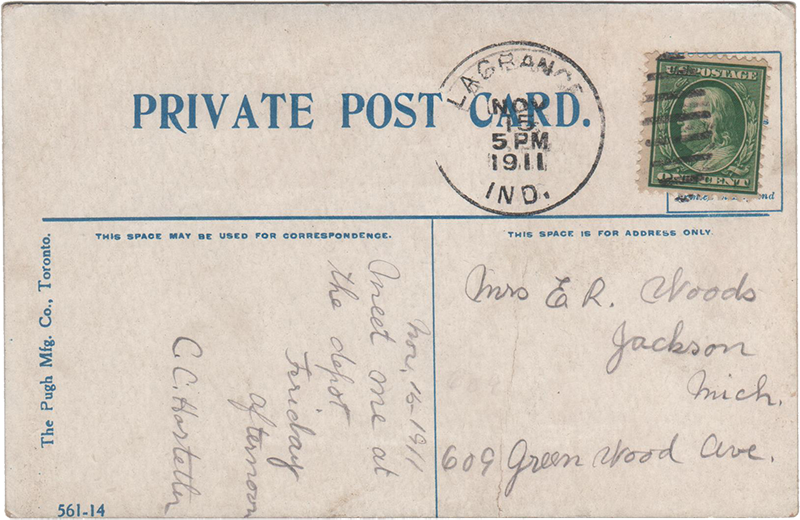 PRIVATE POST CARD.
LAGRANGE
NOV
15
5 PM
1911
IND.
U.S. POSTAGE
ONE CENT
THIS SPACE MAY BE USED FOR CORRESPONDENCE.
THIS SPACE IS FOR ADDRESS ONLY.
The Pugh Mfg. Co., Toronto.
Nov, 16-1911
Meet me at
the depot
Feriday
afternoon
C.C. Hostetler
Mrs E R. Woods
Jackson
Mich.
609 Green Wood Ave.
561-14